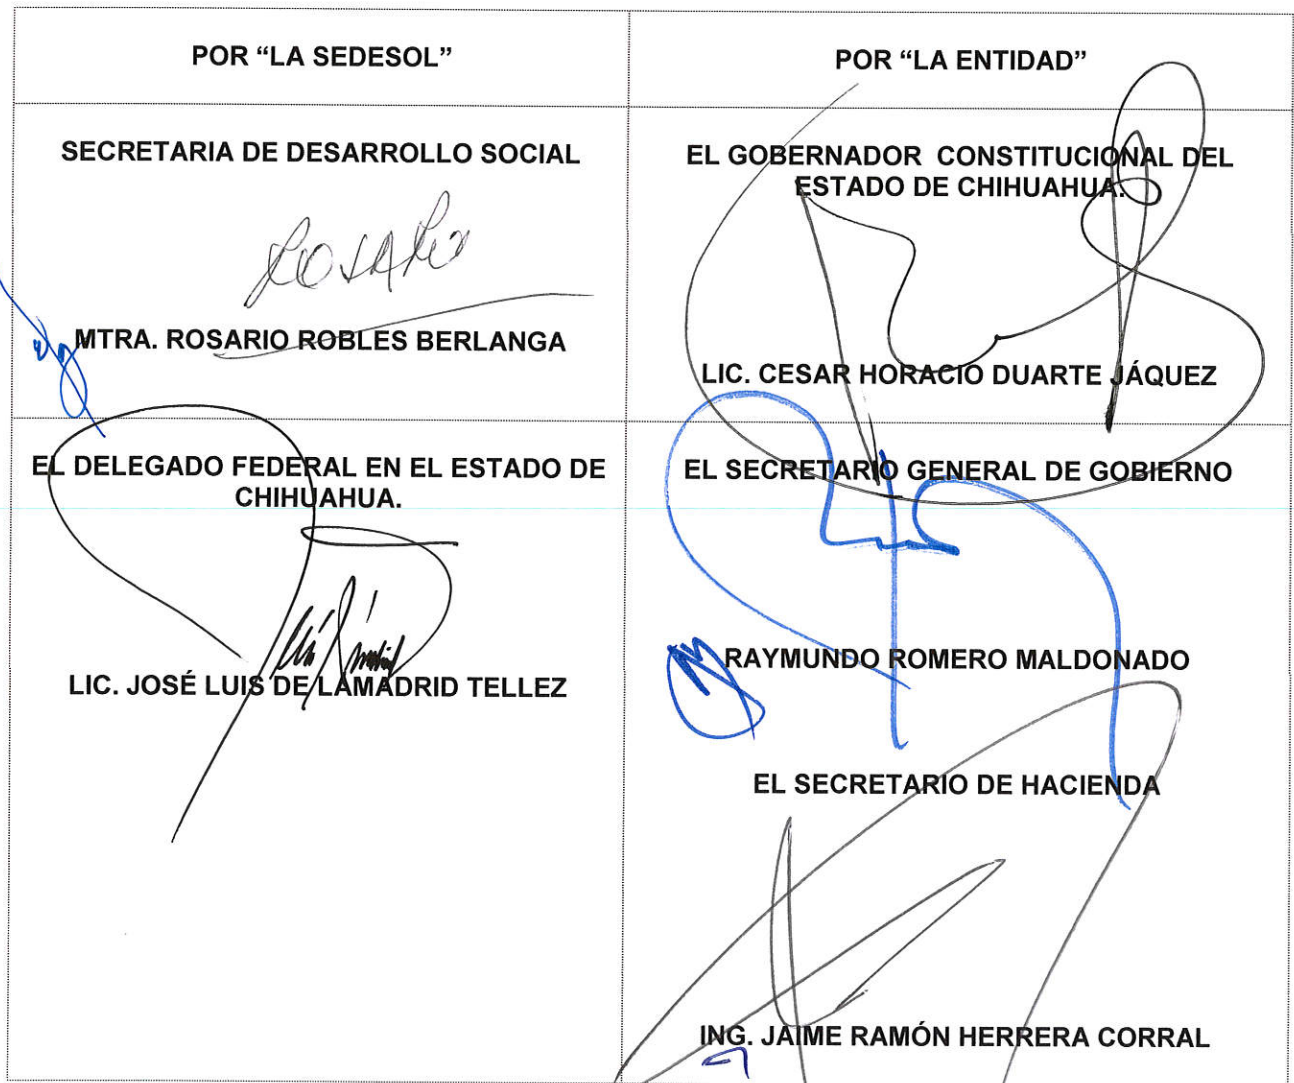 POR “LA SEDESOL”
POR “LA ENTIDAD”
SECRETARIA DE DESARROLLO SOCIAL
Rosario
MTRA. ROSARIO ROBLES BERLANGA
EL GOBERNADOR CONSTITUCIONAL DEL
ESTADO DE CHIHUAHUA.
LIC. CESAR HORACIO DUARTE JÁQUEZ
EL DELEGADO FEDERAL EN EL ESTADO DE
CHIHUAHUA.
LIC. JOSÉ LUIS DE LAMADRID TELLEZ
EL SECRETARIO GENERAL DE GOBIERNO
RAYMUNDO ROMERO MALDONADO
EL SECRETARIO DE HACIENDA
ING. JAIME RAMÓN HERRERA CORRAL